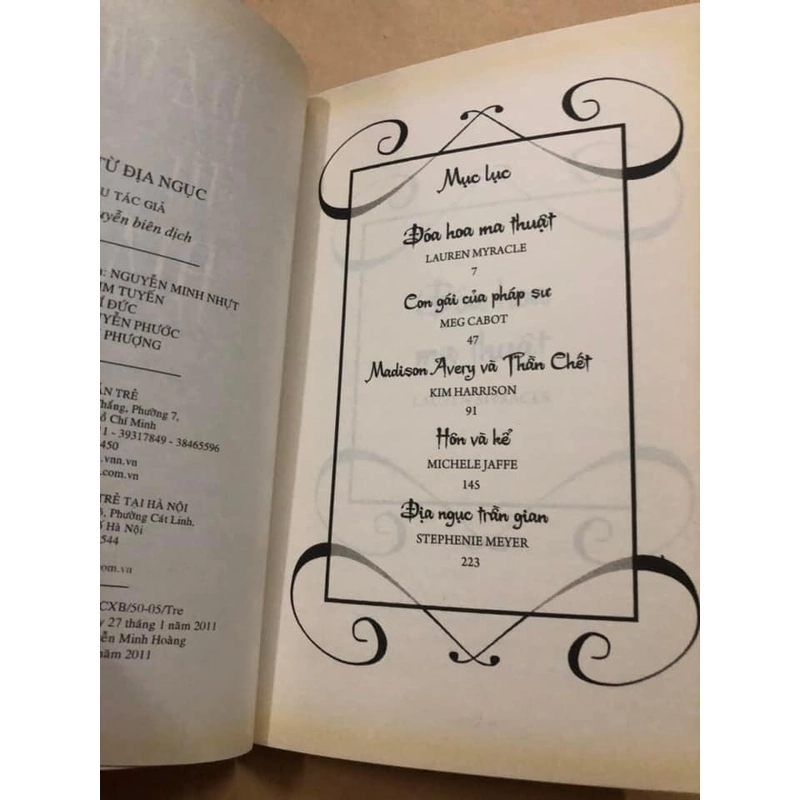 TỪ ĐỊA NGỤC
TÁC GIẢ
biên dịch
NGUYỄN MINH NHỰT
TUYẾN
ĐỨC
PHƯỚC
PHƯỢNG
TRẺ
Phường 7,
Chí Minh
- 39317849 - 38465596
450
.vnn.vn
.com.vn
TRẺ TẠI HÀ NỘI
Phường Cát Linh,
Hà Nội
544
.com.vn
CXB/50-05/Tre
27 tháng 1 năm 2011
Minh Hoàng
năm 2011
Mục lục
Đóa hoa ma thuật
LAUREN MYRACLE
7
Con gái của pháp sư
MEG CABOT
47
Madison Avery và Thần Chết
KIM HARRISON
91
Hôn và kể
MICHELE JAFFE
145
Địa ngục trần gian
STEPHENIE MEYER
223